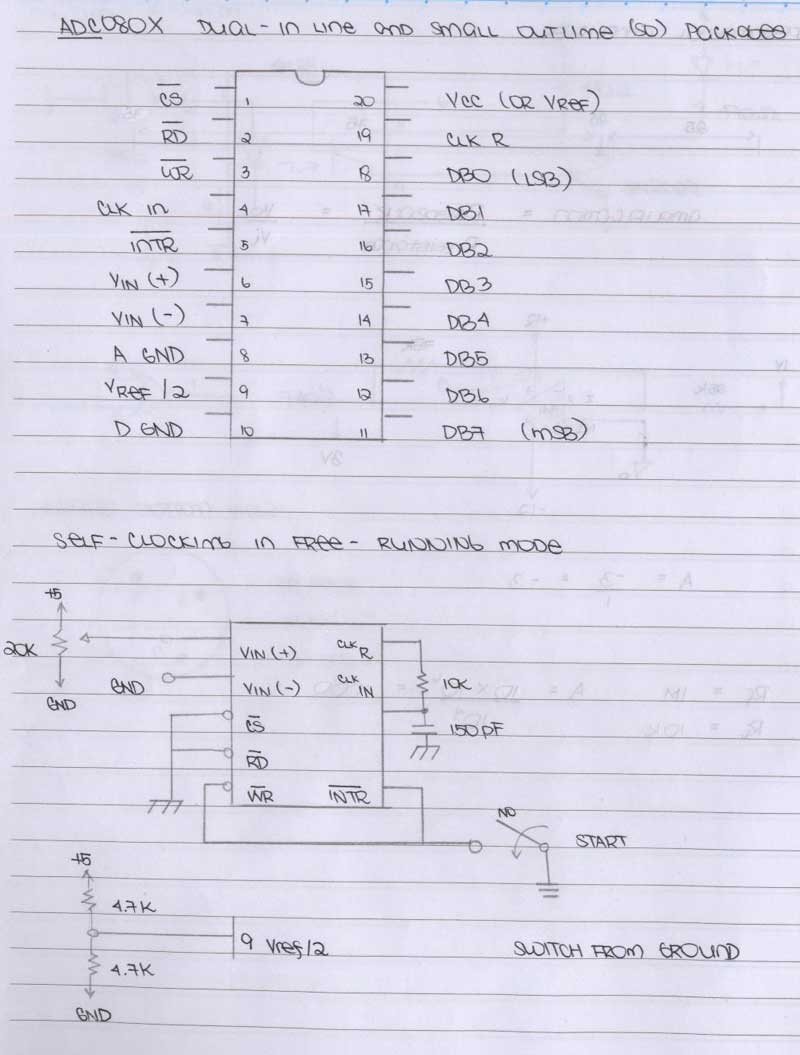 ADC080X DUAL-IN LINE AND SMALL OUTLINE (SO) PACKAGES
C̅S̅ 1 20 VCC (OR VREF)
R̅D̅ 2 19 CLK R
W̅R̅ 3 18 DB0 (LSB)
CLK IN 4 17 DB1
I̅N̅T̅R̅ 5 16 DB2
VIN (+) 6 15 DB3
VIN (-) 7 14 DB4
A GND 8 13 DB5
VREF/2 9 12 DB6
D GND 10 11 DB7 (MSB)
SELF-CLOCKING IN FREE-RUNNING MODE
+5
20K
GND
GND
VIN (+) CLK R
VIN (-) CLK IN
10K
150pF
C̅S̅
R̅D̅
W̅R̅ I̅N̅T̅R̅
NO
START
+5
4.7K
9 Vref/2
SWITCH FROM GROUND
4.7K
GND